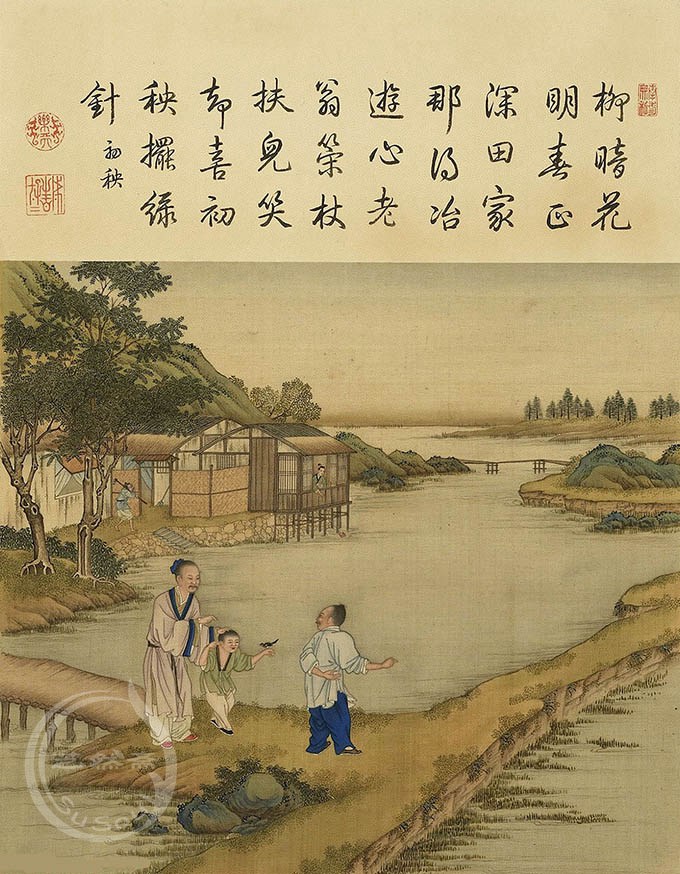 柳暗花
明春正
深田家
那得冶
遊心老
翁策杖
扶兒笑
却喜初
秧擺綠
針 初秧